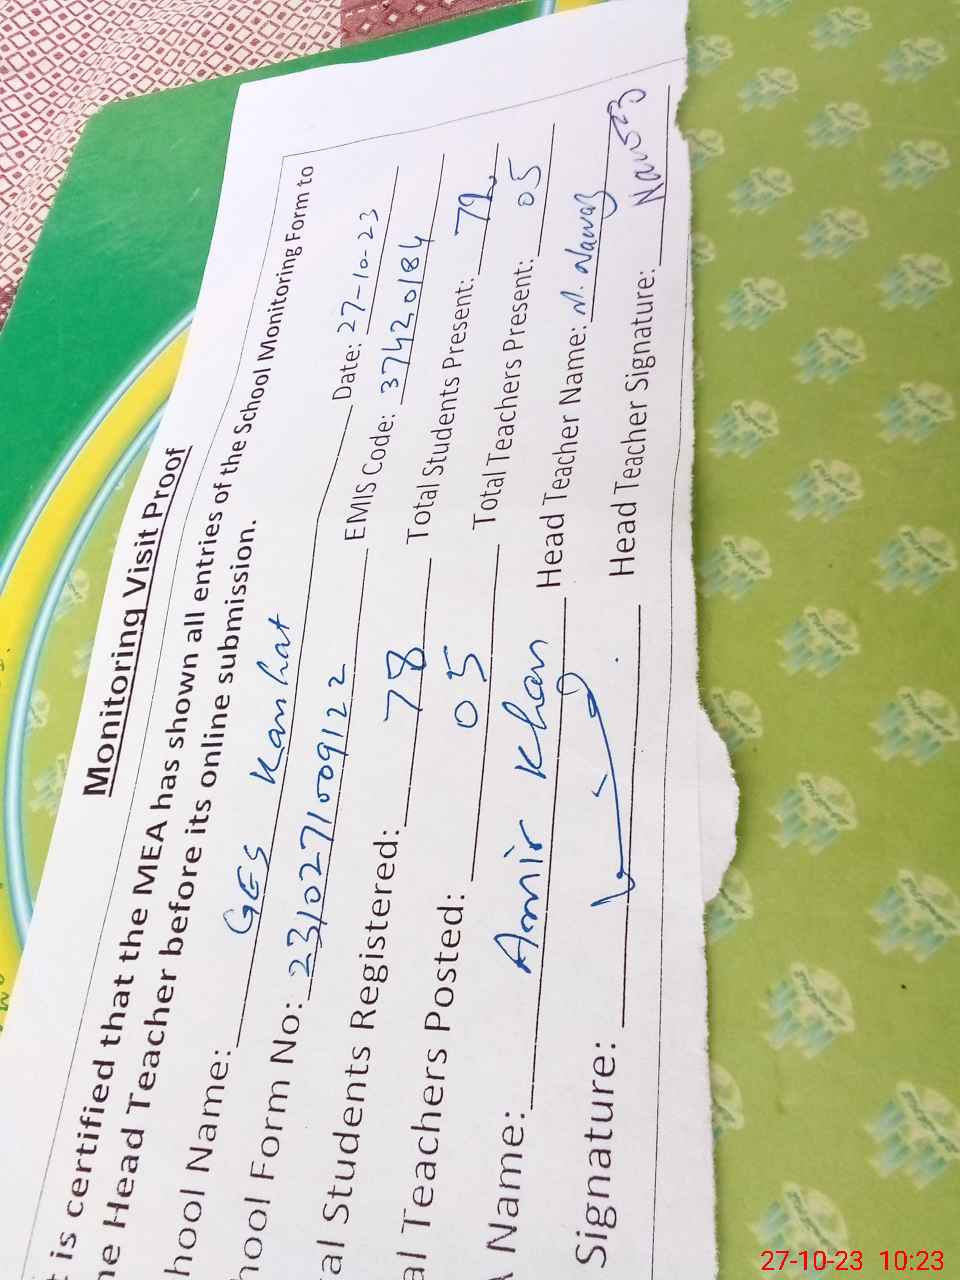 Monitoring Visit Proof
t is certified that the MEA has shown all entries of the School Monitoring Form to
he Head Teacher before its online submission.
hool Name: GES Kanhat Date: 27-10-23
hool Form No: 2310271009122 EMIS Code: 37420184
al Students Registered: 78 Total Students Present: 72
al Teachers Posted: 05 Total Teachers Present: 05
Name: Amir Khan Head Teacher Name: M. Nawaz
Signature: Head Teacher Signature: Nawaz
27-10-23 10:23